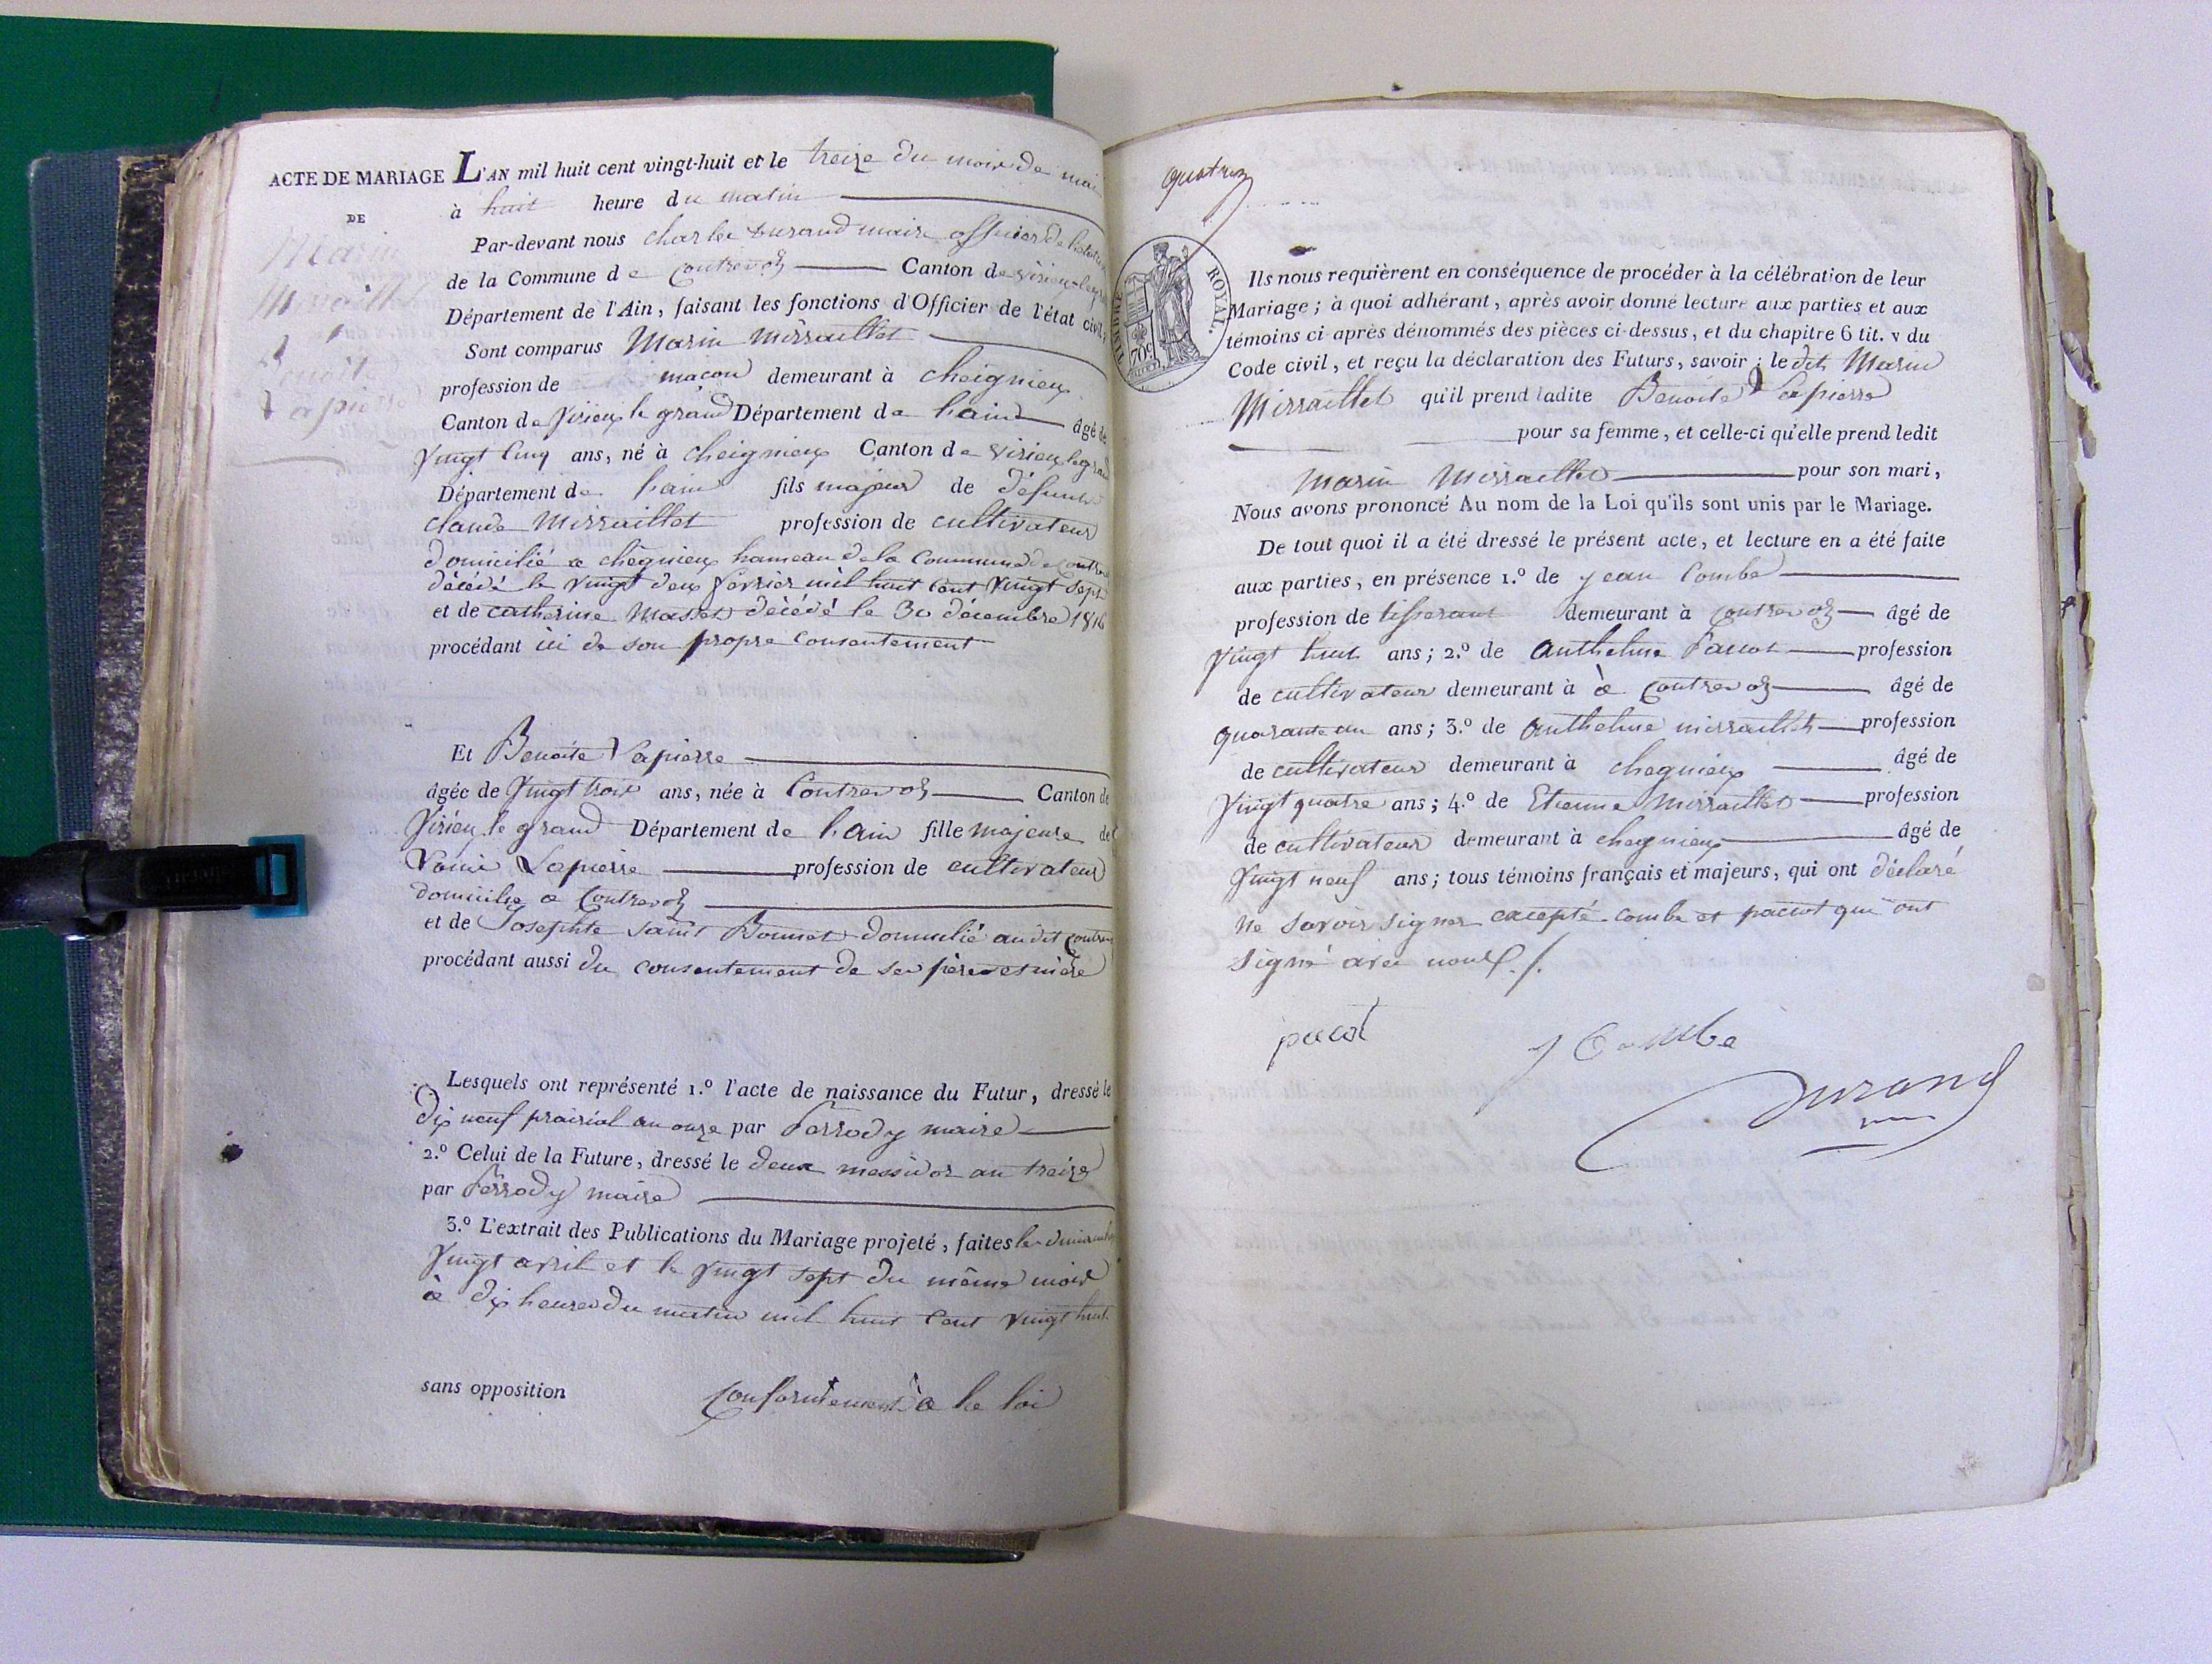 ACTE DE MARIAGE
DE
Marin
Mirraillet
&
Benoite
Lapierre
L'AN mil huit cent vingt-huit et le treize du mois de mai
à huit heure du matin
Par-devant nous charles Durand maire officier de
de la Commune de Contrevoz Canton de virieu-le-grand
Département de l'Ain, faisant les fonctions d'Officier de l'état civil,
Sont comparus Marin Mirraillet
profession de maçon demeurant à cheignieu
Canton de Virieu le grand Département de l'ain âgé de
Vingt Cinq ans, né à cheignieu Canton de virieu le grand
Département de l'ain fils majeur de défunt
claude Mirraillet profession de cultivateur
domicilié a chégnieu hameau de la Commune de
décédé le vingt deux février mil huit cent vingt sept
et de catherine Masset décédé le 30 décembre 1816
procédant ici de son propre consentement
Et Benoite Lapierre
âgée de Vingt trois ans, née à Contrevoz Canton de
Virieu le grand Département de l'ain fille majeure de
Lapierre profession de cultivateur
domicilié a Contrevoz
et de Josephte saint Bonnet domicilié audit
procédant aussi du consentement de ses père et mère
Lesquels ont représenté 1.º l'acte de naissance du Futur, dressé le
Dix neuf prairial an onze par Perrody maire
2.º Celui de la Future, dressé le deux messidor an treize
par Perrody maire
3.º L'extrait des Publications du Mariage projeté, faites le dimanche
Vingt avril et le vingt sept du même mois
à dix heures du matin mil huit cent vingt huit
sans opposition Conformément à la loi
quatorze
TIMBRE ROYAL.
70c
Ils nous requièrent en conséquence de procéder à la célébration de leur
Mariage; à quoi adhérant, après avoir donné lecture aux parties et aux
témoins ci-après dénommés des pièces ci-dessus, et du chapitre 6 tit. v du
Code civil, et reçu la déclaration des Futurs, savoir: le dit Marin
Mirraillet qu'il prend ladite Benoite Lapierre
pour sa femme, et celle-ci qu'elle prend ledit
Marin Mirraillet pour son mari,
Nous avons prononcé Au nom de la Loi qu'ils sont unis par le Mariage.
De tout quoi il a été dressé le présent acte, et lecture en a été faite
aux parties, en présence 1.º de Jean Combe
profession de tisserant demeurant à Contrevoz âgé de
Vingt huit ans; 2.º de Anthelme Paccot profession
de cultivateur demeurant à à Contrevoz âgé de
quarante un ans; 3.º de Anthelme mirraillet profession
de cultivateur demeurant à chegnieu âgé de
Vingt quatre ans; 4.º de Etienne Mirraillet profession
de cultivateur demeurant à chegnieu âgé de
Vingt neuf ans; tous témoins français et majeurs, qui ont déclaré
ne savoir signer excepté combe et paccot qui ont
signé avec nous ./.
pacot
J Combe
Durand